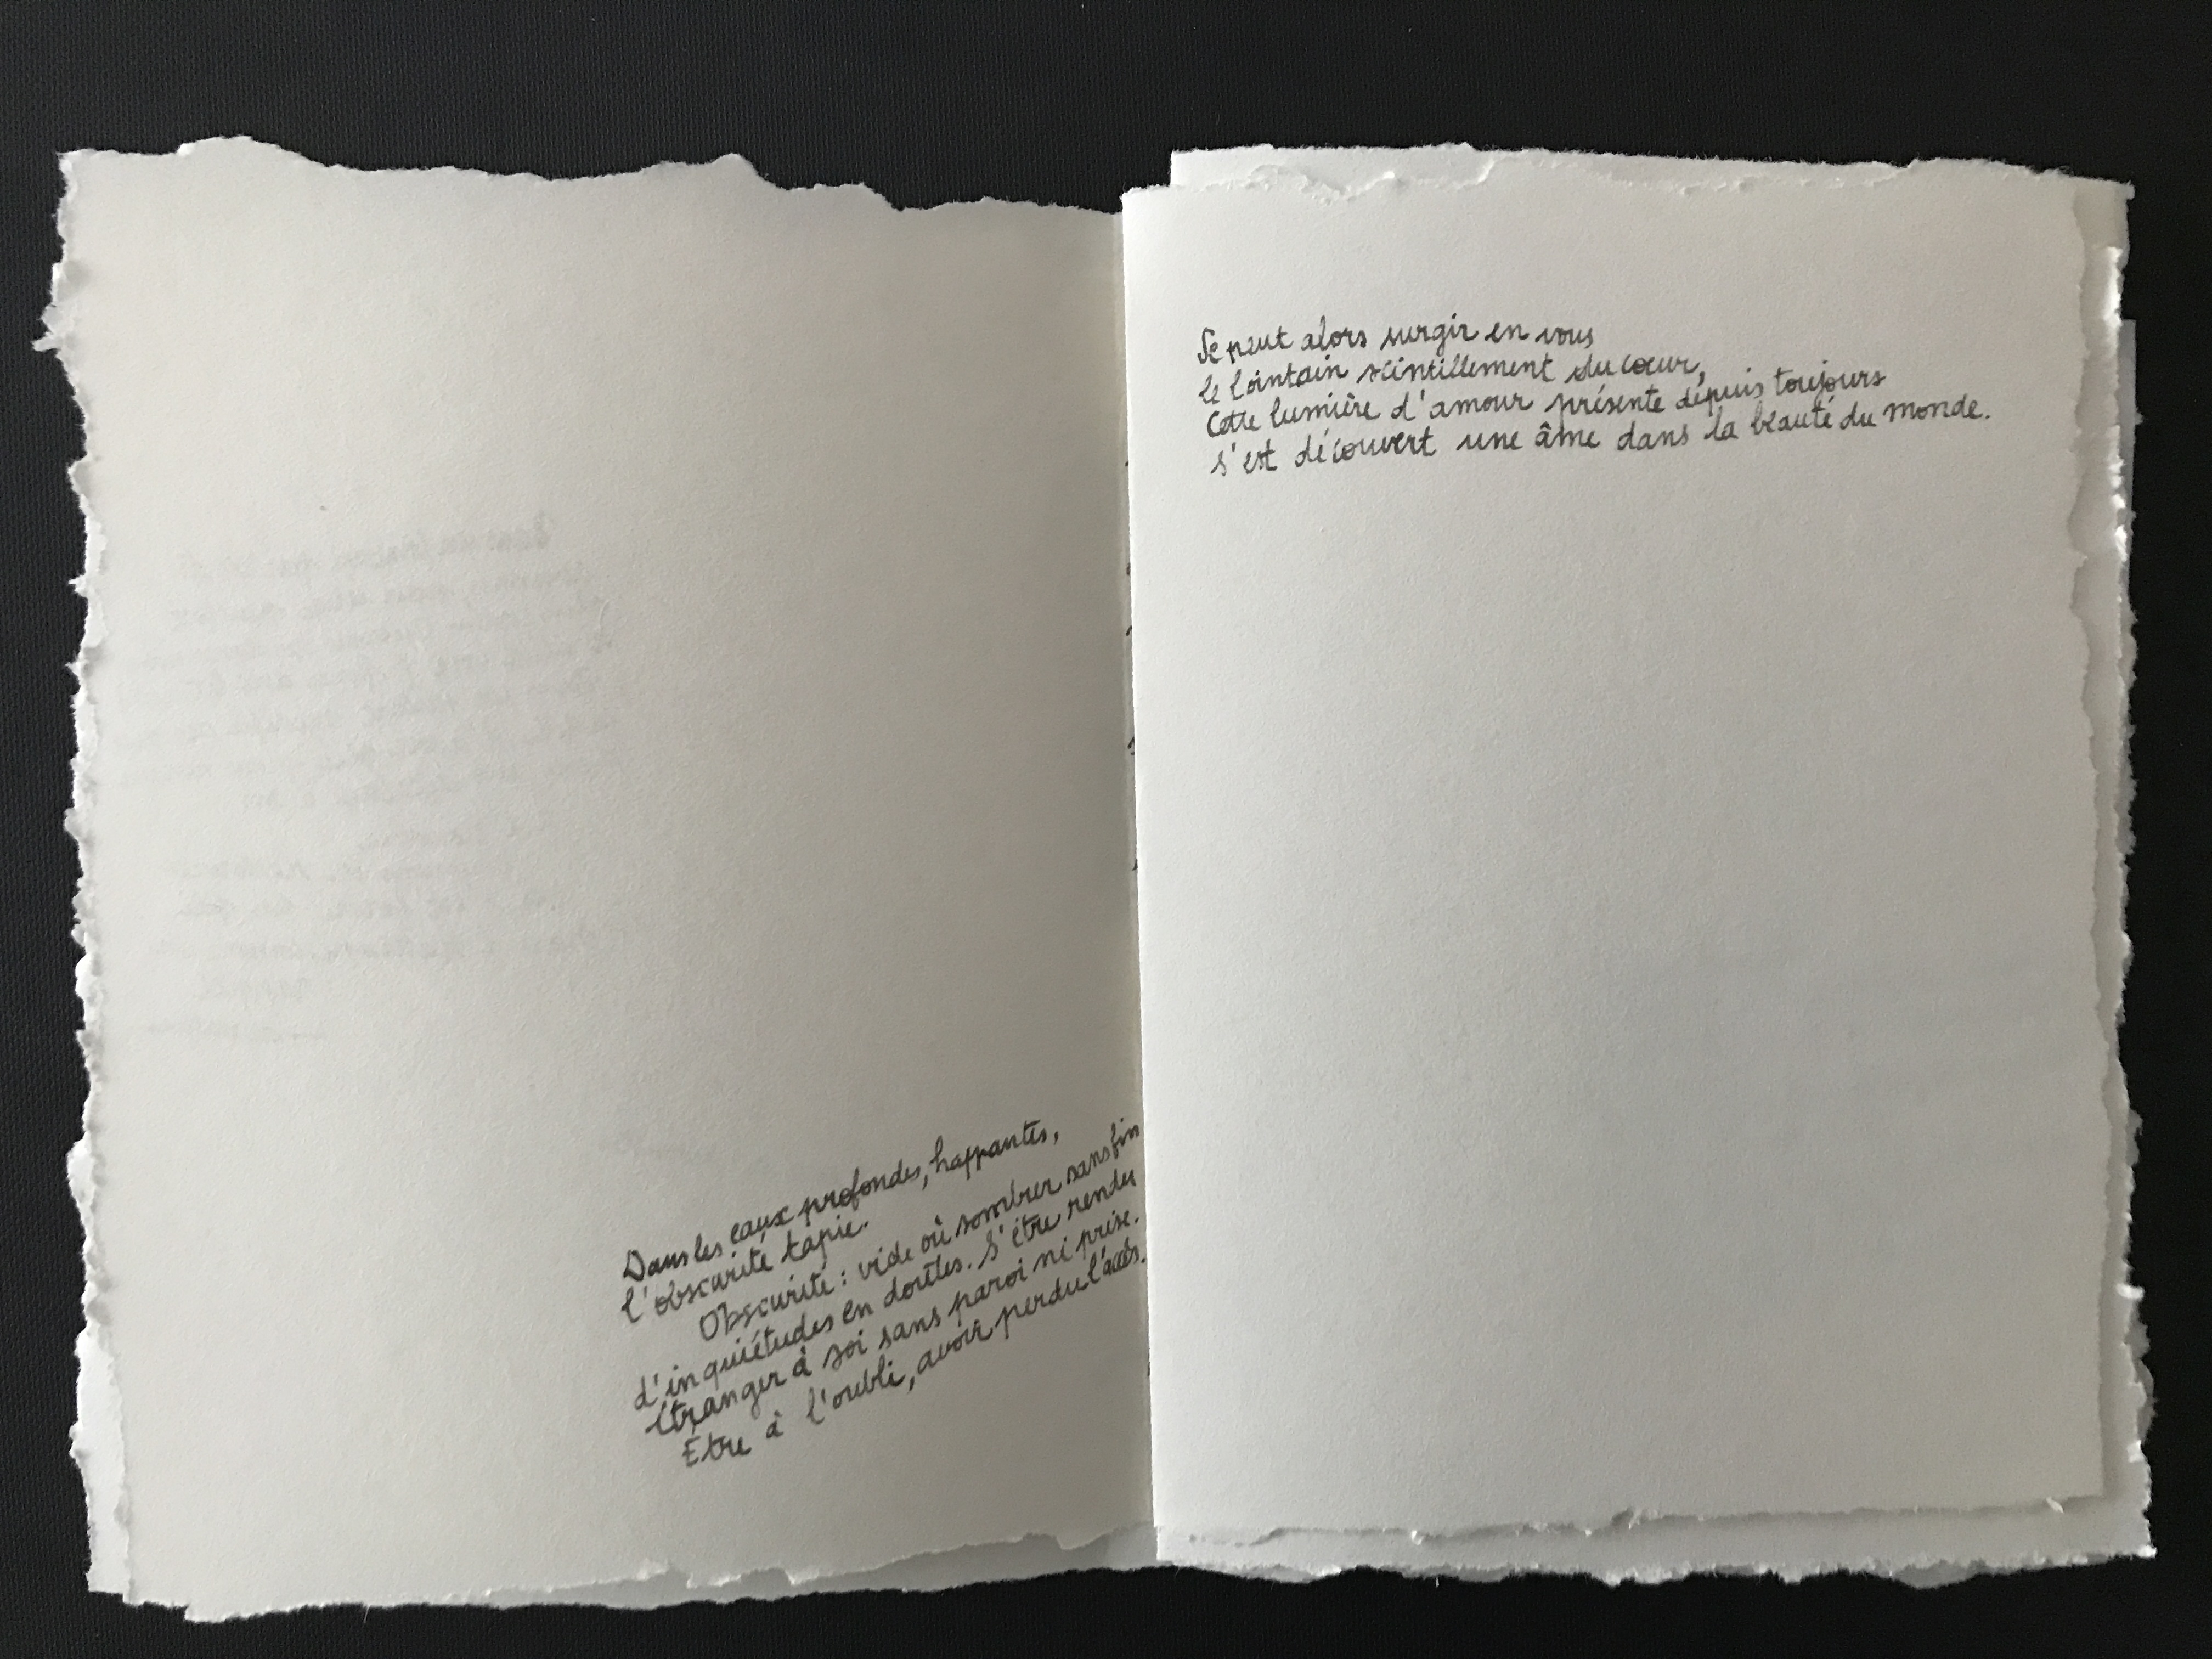 Dans les eaux profondes, happantes,
l'obscurité tapie.
Obscurité : vide où sombrer sans fin
d'inquiétudes en doutes. S'être rendu
étranger à soi sans paroi ni prise.
Être à l'oubli, avoir perdu l'accès.
Se peut alors surgir en vous
le lointain scintillement du cœur,
Cette lumière d'amour présente depuis toujours
s'est découvert une âme dans la beauté du monde.